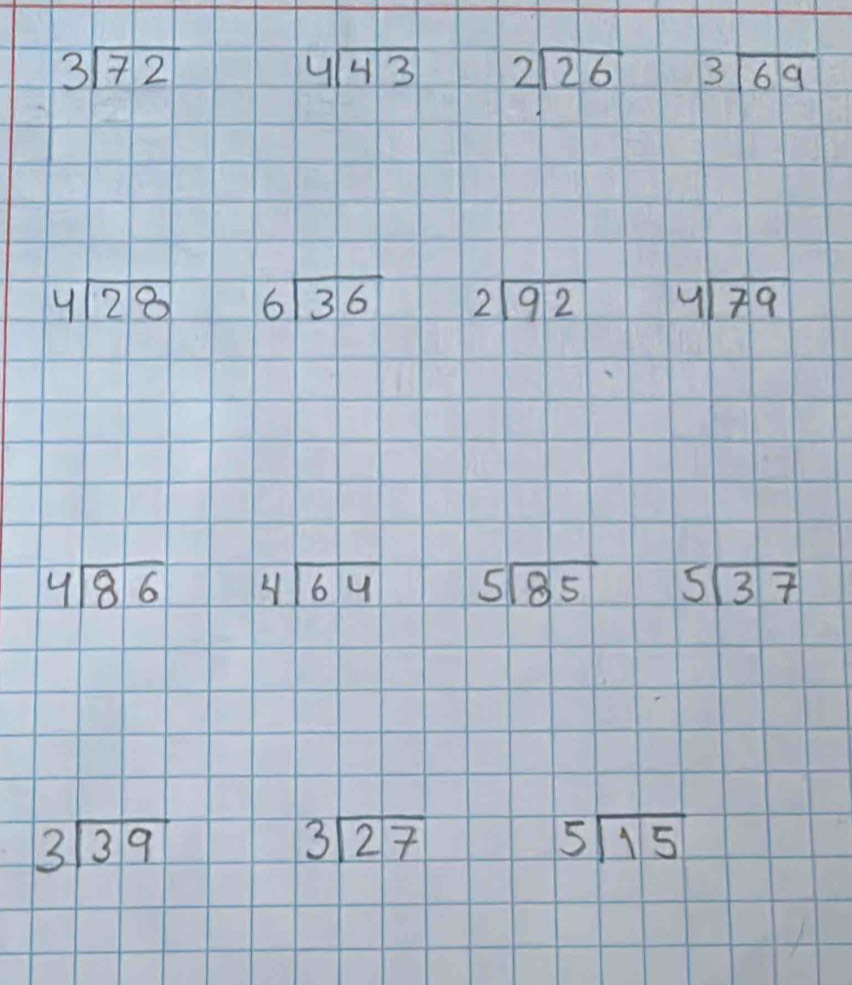 3⟌72 4⟌43 2⟌26 3⟌69
4⟌28 6⟌36 2⟌92 4⟌79
4⟌86 4⟌64 5⟌85 5⟌37
3⟌39 3⟌27 5⟌15